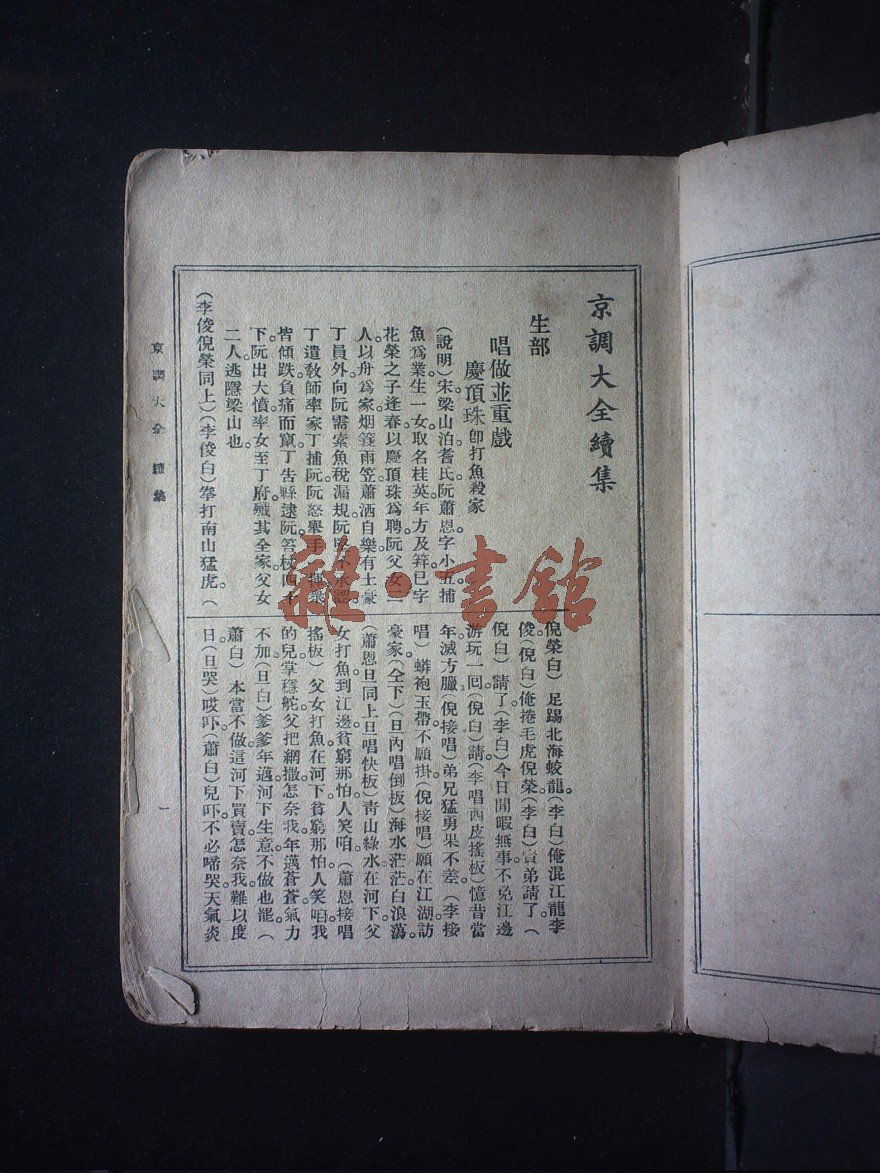 京調大全續集
生部
唱做並重戲
慶頂珠 卽打魚殺家
(說明)宋梁山泊耆氏阮蕭恩字小五捕
魚爲業生一女取名桂英年方及笄已字
花榮之子逢春以慶頂珠爲聘。阮父女二
人以舟爲家烟簑雨笠蕭洒自樂有土豪
丁員外向阮需索魚稅漏規阮
丁遣敎師率家丁捕阮阮怒舉手一揮環
皆傾跌負痛而竄丁告縣逮阮笞杖四十
下。阮出大憤率女至丁府殲其全家父女
二人逃隱梁山也。
(李俊倪榮同上)(李俊白)拳打南山猛虎。(
倪榮白)足踢北海蛟龍。(李白)俺混江龍李
俊。(倪白)俺捲毛虎倪榮(李白)賢弟請了。(
倪白)請了(李白)今日閒暇無事不免江邊
游玩一回(倪白)請(李唱西皮搖板)憶昔當
年滅方臘(倪接唱)弟兄猛勇果不差。(李接
唱)蟒袍玉帶不願掛(倪接唱)願在江湖訪
豪家(仝下)(旦內唱倒板)海水茫茫白浪蕩
(蕭恩旦同上旦唱快板)靑山綠水在河下父
女打魚到江邊貧窮那怕人笑咱(蕭恩接唱
搖板)父女打魚在河下貧窮那怕人笑咱我
的兒掌穩舵父把網撒怎奈我年邁蒼蒼氣力
不加(旦白)爹爹年邁河下生意不做也罷。(
蕭白)本當不做這河下買賣怎奈我難以度
日(旦哭)哎吓(蕭白)兒吓不必啼哭天氣炎
京調大全 續集
一
雜·書館